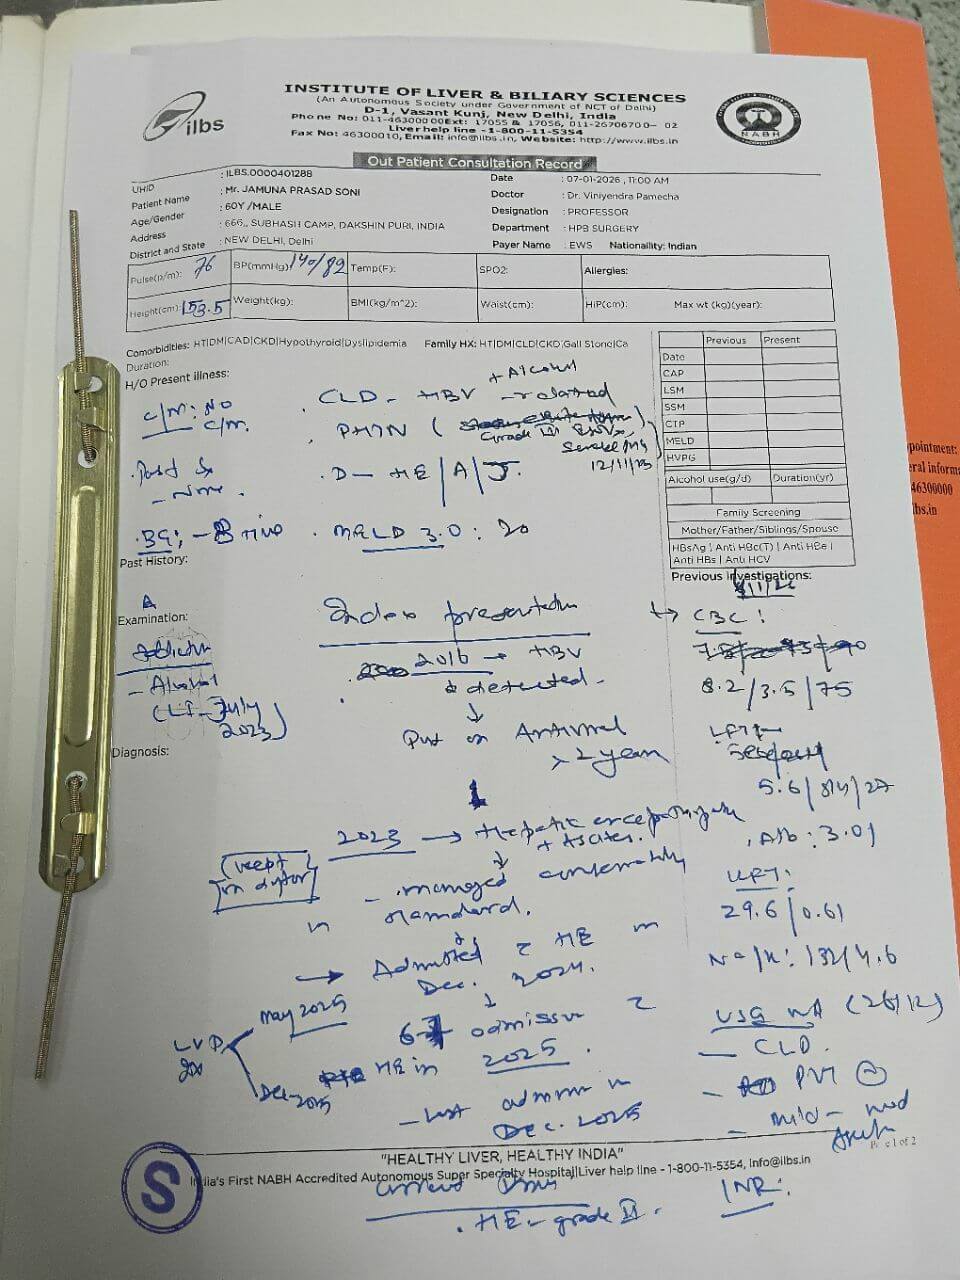 ilbs
INSTITUTE OF LIVER & BILIARY SCIENCES
(An Autonomous Society under Government of NCT of Delhi)
D-1, Vasant Kunj, New Delhi, India
Phone No: 011-46300000Ext: 17055 & 17056, 011-26706700- 02
Liver help line -1-800-11-5354
Fax No: 46300010, Email: info@ilbs.in, Website: http://www.ilbs.in
NABH
Out Patient Consultation Record
UHID : ILBS.0000401288
Patient Name : Mr. JAMUNA PRASAD SONI
Age/Gender : 60Y /MALE
Address : 666,, SUBHASH CAMP, DAKSHIN PURI, INDIA
District and State : NEW DELHI, Delhi
Date : 07-01-2026 , 11:00 AM
Doctor : Dr. Viniyendra Pamecha
Designation : PROFESSOR
Department : HPB SURGERY
Payer Name : EWS Nationaility: Indian
Pulse(p/m): 76 BP(mmHg) 140/82 Temp(F): SPO2: Allergies:
Height(cm): 153.5 Weight(kg): BMI(kg/m^2): Waist(cm): HiP(cm): Max wt (kg)(year):
Comorbidities: HT|DM|CAD|CKD|Hypothyroid|Dyslipidemia Family HX: HT|DM|CLD|CKD|Gall Stone|Ca
Duration:
H/O Present illness:
Previous Present
Date
CAP
LSM
SSM
CTP
MELD
HVPG
Alcohol use(g/d) Duration(yr)
Family Screening
Mother/Father/Siblings/Spouse
HBsAg | Anti HBc(T) | Anti HBe |
Anti HBs | Anti HCV
+ Alcohol
. CLD - HBV - related
C/M: NO
C/M.
. PHTN (
Grade III
12/11/25
. Past Sx
- None.
. D - HE/A/J
. BG: - B +ive
. MELD 3.0: 20
Past History:
Previous Investigations:
Examination:
- Alcohol
(LI - July
2023)
Diagnosis:
Index presentation
2016 → HBV
detected.
↓
Put on Antiviral
> 2 year
2023 → Hepatic encephalopathy
+ Ascites.
- managed conservatively
in
→ Admitted c HE in
Dec. 2024.
↓
6-7 admission c
HE in 2025.
- Last admission in
Dec. 2025
LVP
2x
May 2025
Dec-2025
→ CBC:
8.2/3.5/75
LFT
. Alb: 3.01
KFT:
29.6/0.61
Na/K: 132/4.6
USG WA (26/12)
- CLD.
- PVT
- mild - mod
Page 1 of 2
"HEALTHY LIVER, HEALTHY INDIA"
India's First NABH Accredited Autonomous Super Specialty Hospital|Liver help line - 1-800-11-5354, info@ilbs.in
S
Current
. HE - grade II.
INR:
pointment:
eral informa
46300000
lbs.in